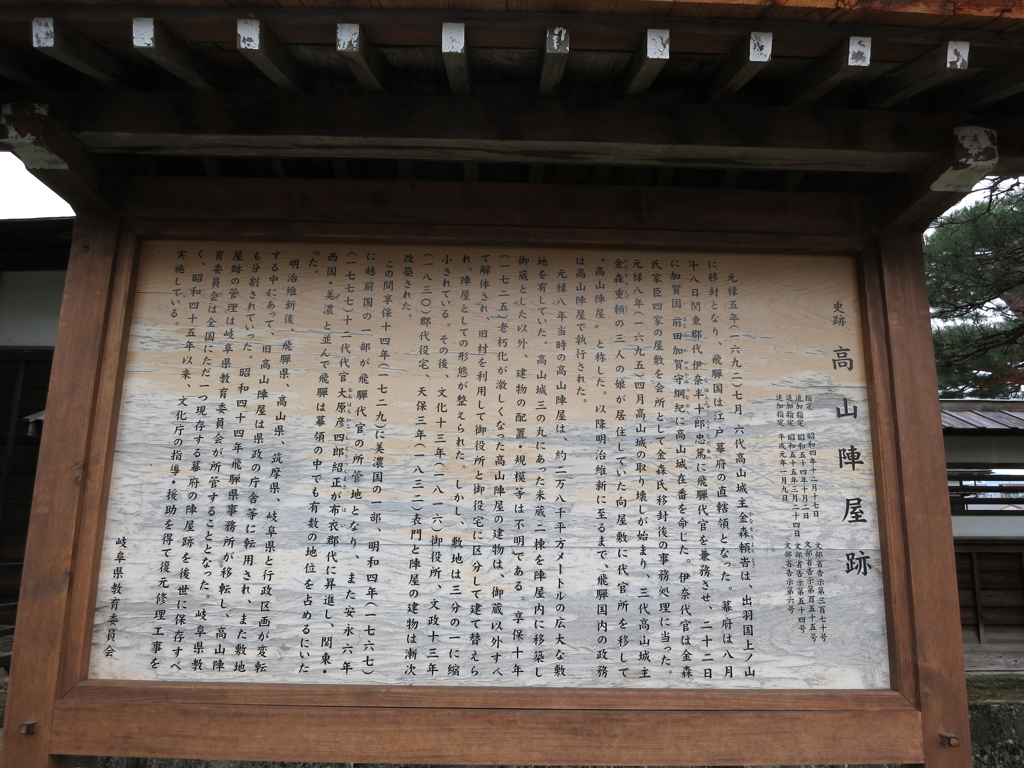 史跡 高山陣屋跡
指定 昭和四年十二月十七日 文部省告示第三百七十号
追加指定 昭和五十四年十月二日 文部省告示第百五十五号
追加指定 昭和五十五年三月二十四日 文部省告示第五十四号
追加指定 平成元年一月九日 文部省告示第六号
元禄五年(一六九二)七月 六代高山城主金森頼旹は、出羽国上ノ山
に移封となり、飛騨国は江戸幕府の直轄領となった。幕府は八月
十八日関東郡代伊奈半十郎忠篤に飛騨代官を兼務させ、二十二日
に加賀国 前田加賀守綱紀に高山城在番を命じた。伊奈代官は金森
氏家臣四家の屋敷を会所として金森氏移封後の事務処理に当った。
元禄八年(一六九五)四月高山城の取り壊しが始まり、三代高山城主
金森重頼の三人の娘が居住していた向屋敷に代官所を移して
〝高山陣屋〟と称した。以降明治維新に至るまで、飛騨国内の政務
は高山陣屋で執行された。
元禄八年当時の高山陣屋は、約二万八千平方メートルの広大な敷
地を有していた。高山城三の丸にあった米蔵二棟を陣屋内に移築し
御蔵とした以外、建物の配置、規模等は不明である。享保十年
(一七二五)老朽化が激しくなった高山陣屋の建物は、御蔵以外すべ
て解体され、旧材を利用して御役所と御役宅に区分して建て替えら
れ、陣屋としての形態が整えられた。しかし、敷地は三分の一に縮
小されている。その後、文化十三年(一八一六)御役所、文政十三年
(一八三〇)郡代役宅、天保三年(一八三二)表門と陣屋の建物は漸次
改築された。
この間享保十四年(一七二九)に美濃国の一部、明和四年(一七六七)
に越前国の一部が飛騨代官の所管地となり、また安永六年
(一七七七)十二代官大原彦四郎紹正が布衣郡代に昇進し、関東・
西国・美濃と並んで飛騨は幕領の中でも有数の地位を占めるにいた
った。
明治維新後、飛騨県、高山県、筑摩県、岐阜県と行政区画が変転
する中にあって、旧高山陣屋は県政の庁舎等に転用され、また敷地
も分割されていった。昭和四十四年飛騨県事務所が移転し、高山陣
屋跡の管理は岐阜県教育委員会が所管することとなった。岐阜県教
育委員会は全国にただ一つ現存する幕府の陣屋跡を後世に保存すべ
く、昭和四十五年以来、文化庁の指導・援助を得て復元修理工事を
実施している。
岐阜県教育委員会